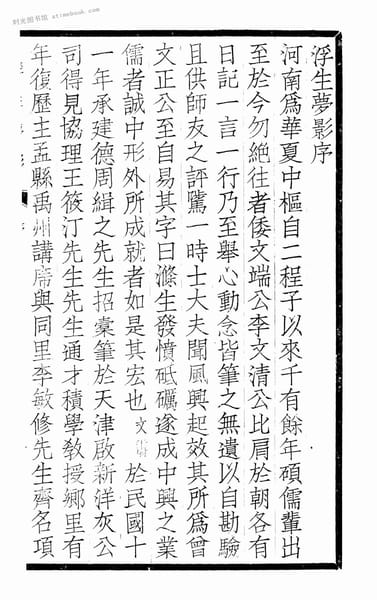 时光图书馆 xtimebook.com
浮生夢影序
河南爲華夏中樞自二程子以來千有餘年碩儒輩出
至於今勿絶往者倭文端公李文清公比肩於朝各有
日記一言一行乃至舉心動念皆筆之無遺以自勘驗
且供師友之評騭一時士大夫聞風興起效其所爲曾
文正公至自易其字曰滌生發憤砥礪遂成中興之業
儒者誠中形外所成就者如是其宏也 於民國十
一年承建德周緝之先生招橐筆於天津啟新洋灰公
司得見協理王筱汀先生先生通才積學教授鄉里有
年復歷主孟縣禹州講席與同里李敏修先生齊名項